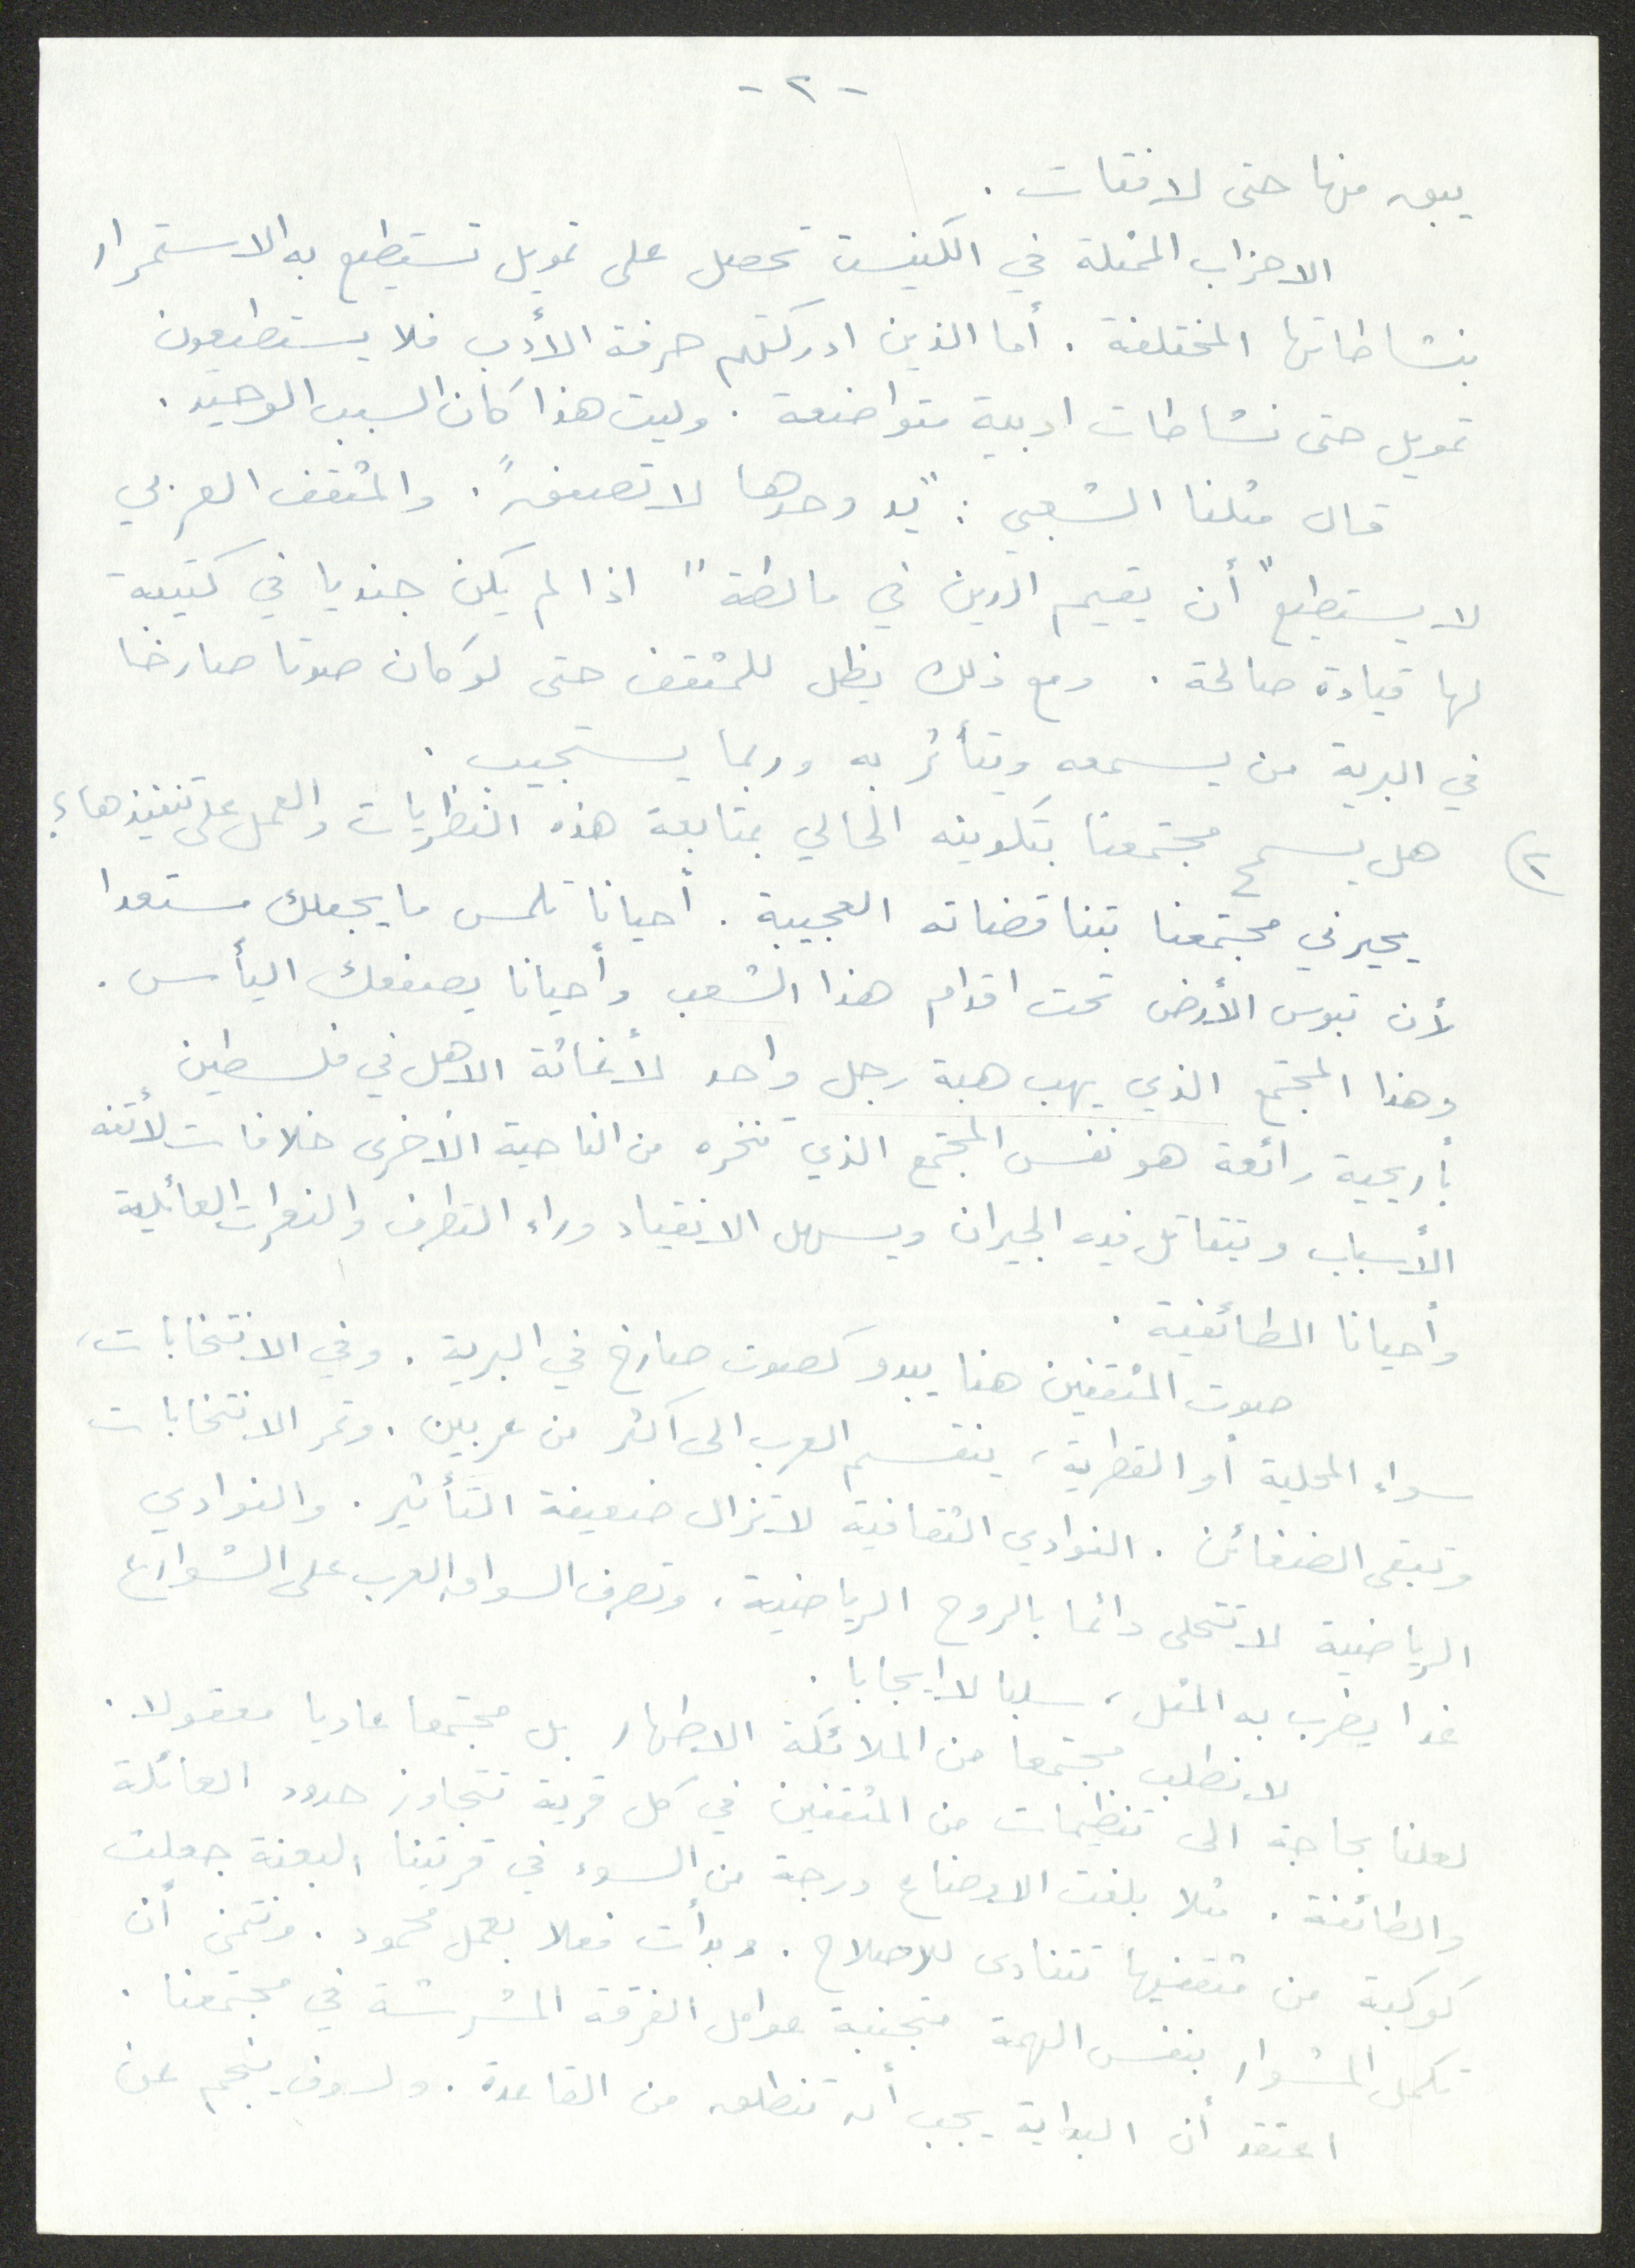 - ٢ -
يبق منها حتى لافتات .
الاحزاب الممثلة في الكنيست تحصل على تمويل تستطيع به الاستمرار
بنشاطاتها المختلفة . أما الذين ادركتهم حرفة الأدب فلا يستطيعون
تمويل حتى نشاطات ادبية متواضعة . وليت هذا كان السبب الوحيد .
قال مثلنا الشعبي : "يد وحدها لا تصفق" . والمثقف العربي
لا يستطيع "أن يقيم الدين في مالطة" اذا لم يكن جنديا في كتيبة
لها قيادة صالحة . ومع ذلك يظل للمثقف حتى لو كان صوتا صارخا
في البرية من يسمعه ويتأثر به وربما يستجيب .
٢) هل يسمح مجتمعنا بتكوينه الحالي بمتابعة هذه النظريات والعمل على تنفيذها؟
يحيرني مجتمعنا بتناقضاته العجيبة . أحيانا تلمس ما يجعلك مستعدا
لأن تبوس الأرض تحت اقدام هذا الشعب وأحيانا يصفعك اليأس .
وهذا المجتمع الذي يهب هبة رجل واحد لأغاثة الاهل في فلسطين
بأريحية رائعة هو نفس المجتمع الذي تنخره من الناحية الأخرى خلافات لأتفه
الأسباب ويتقاتل فيه الجيران ويسهل الانقياد وراء التطرف والنعرات العائلية
وأحيانا الطائفية .
صوت المثقفين هنا يبدو كصوت صارخ في البرية . وفي الانتخابات،
سواء المحلية أو القطرية، ينقسم العرب الى أكثر من عربين . وتمر الانتخابات
وتبقى الضغائن . النوادي الثقافية لا تزال ضعيفة التأثير . والنوادي
الرياضية لا تتحلى دائما بالروح الرياضية ، وتصرف السواق العرب على الشوارع
غدا يضرب به المثل، سلبا لا ايجابا .
لا نطلب مجتمعا من الملائكة الاطهار بل مجتمعا عاديا معقولا .
لعلنا بحاجة الى تنظيمات من المثقفين في كل قرية تتجاوز حدود العائلة
والطائفة . مثلا بلغت الاوضاع درجة من السوء في قريتنا البعنة جعلت
كوكبة من مثقفيها تتنادى للاصلاح . وبدأت فعلا بعمل محمود . ونتمنى أن
تكمل المشوار بنفس الهمة متجنبة عوامل الفرقة المشرشة في مجتمعنا .
اعتقد أن البداية يجب أن تنطلق من القاعدة . ولسوف ينجم عن